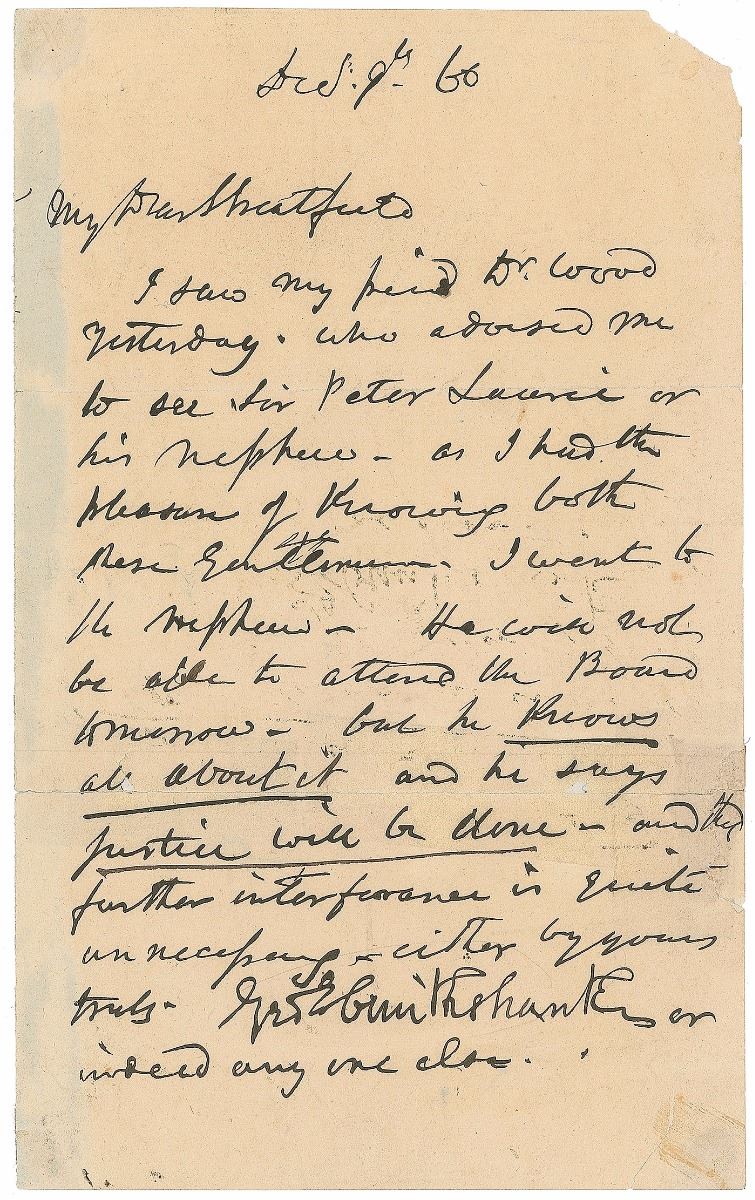 Decr. 9th 60
My Dear Streatfield
I saw my friend Dr. Wood
Yesterday. who advised me
to see Sir Peter Laurie or
his nephew – as I had the
pleasure of Knowing both
these Gentlemen – I went to
the nephew – He will not
be able to attend the Board
tomorrow – but he Knows
all about it and he says
justice will be done – and that
further interference is quite
unnecessary – either by yours
truly – Geo Cruikshank or
indeed any one else.